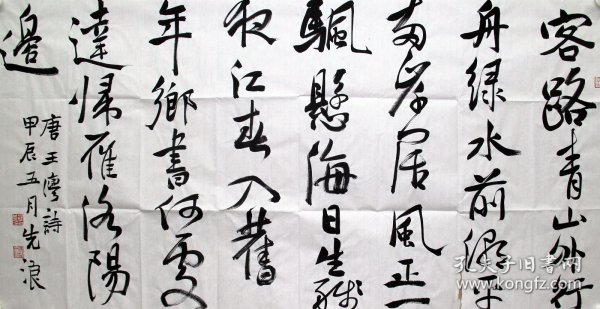 客路青山外行
舟綠水前潮平
兩岸闊風正一
颿懸海日生殘
夜江春入舊
年鄉書何處
達歸雁洛陽
邊
唐王灣詩
甲辰五月先浪
孔夫子旧书网
www.kongfz.com